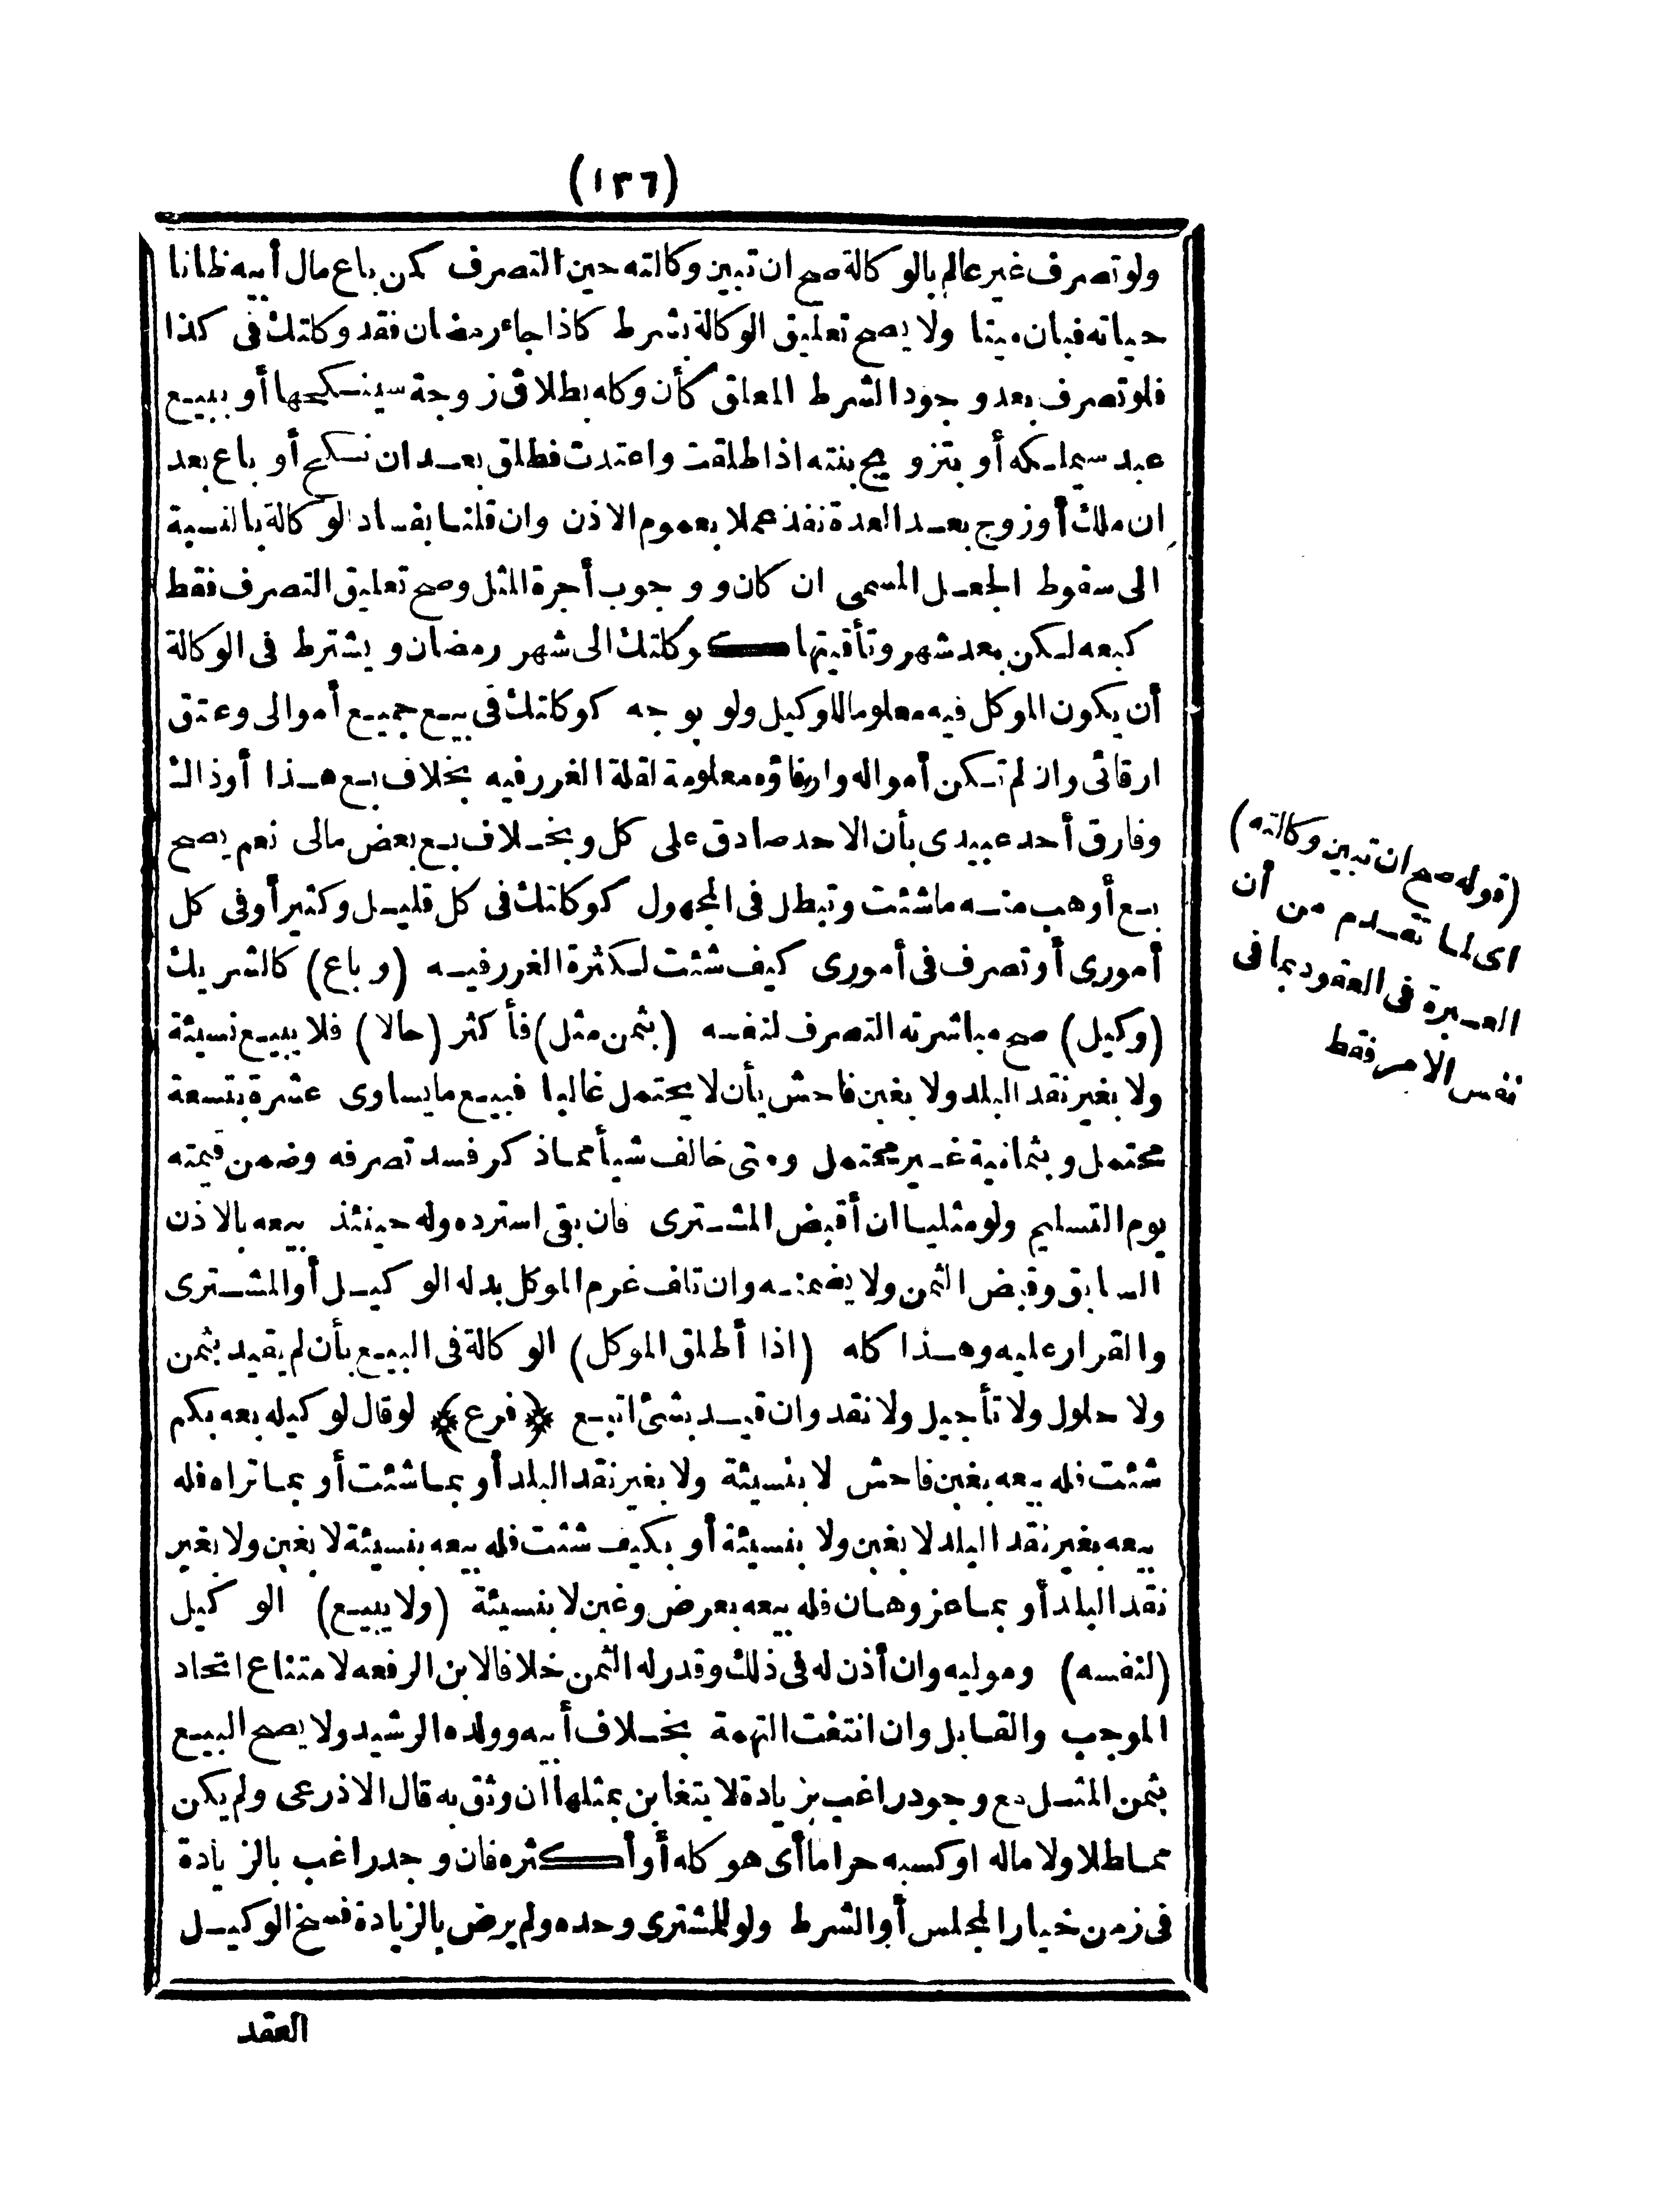 (١٣٦)
ولو تصرف غير عالم بالوكالة صح ان تبين وكالته حين التصرف كمن باع مال أبيه ظانا
حياته فبان ميتا ولا يصح تعليق الوكالة بشرط كاذا جاء رمضان فقد وكلتك فى كذا
فلو تصرف بعد وجود الشرط المعلق كأن وكله بطلاق زوجة سينكحها أو ببيع
عبد سيملكه أو بتزويج بنته اذا طلقت واعتدت فطلق بعد ان نكح أو باع بعد
ان ملك أو زوج بعد العدة نفذ عملا بعموم الاذن وان قلنا بفساد الوكالة بالنسبة
الى سقوط الجعل المسمى ان كان ووجوب أجرة المثل وصح تعليق التصرف فقط
كبعه لكن بعد شهر وتأقيتها كوكلتك الى شهر رمضان ويشترط فى الوكالة
أن يكون الموكل فيه معلوما للوكيل ولو بوجه كوكلتك فى بيع جميع أموالى وعتق
ارقائى وان لم تكن أمواله وارقاؤه معلومة لقلة الغرر فيه بخلاف بع هذا أو ذاك
وفارق أحد عبيدى بأن الاحد صادق على كل وبخلاف بع بعض مالى نعم يصح
بع أو هب منه ما شئت وتبطل فى المجهول كوكلتك فى كل قليل وكثير أو فى كل
أمورى أو تصرف فى أمورى كيف شئت لكثرة الغرر فيه (وباع) كالشريك
(وكيل) صح مباشرته التصرف لنفسه (بثمن مثل) فأكثر (حالا) فلا يبيع نسيئة
ولا بغير نقد البلد ولا بغبن فاحش بأن لا يحتمل غالبا فبيع ما يساوى عشرة بتسعة
محتمل وبثمانية غير محتمل ومتى خالف شيأ مما ذكر فسد تصرفه وضمن قيمته
يوم التسليم ولو مثليا ان أقبض المشترى فان بقى استرده وله حينئذ بيعه بالاذن
السابق وقبض الثمن ولا يضمنه وان تلف غرم الموكل بدله الوكيل أو المشترى
والقرار عليه وهذا كله (اذا أطلق الموكل) الوكالة فى البيع بأن لم يقيد بثمن
ولا حلول ولا تأجيل ولا نقد وان قيد بشئ اتبع ﴿فرع﴾ لو قال لوكيله بعه بكم
شئت فله بيعه بغبن فاحش لا بنسيئة ولا بغير نقد البلد أو بما شئت أو بما تراه فله
بيعه بغير نقد البلد لا بغبن ولا بنسيئة أو بكيف شئت فله بيعه بنسيئة لا بغبن ولا بغير
نقد البلد أو بما عز وهان فله بيعه بعرض وغبن لا بنسيئة (ولا يبيع) الوكيل
(لنفسه) وموليه وان أذن له فى ذلك وقدر له الثمن خلافا لابن الرفعه لامتناع اتحاد
الموجب والقابل وان انتفت التهمة بخلاف أبيه وولده الرشيد ولا يصح البيع
بثمن المثل مع وجود راغب بزيادة لا يتغابن بمثلها ان وثق به قال الاذرعى ولم يكن
مماطلا ولا ماله او كسبه حراما أى هو كله أو أكثره فان وجد راغب بالزيادة
فى زمن خيار المجلس أو الشرط ولو للمشترى وحده ولم يرض بالزيادة فسخ الوكيل
العقد
(قوله صح ان تبين وكالته)
اى لما تقدم من أن
العبرة فى العقود بما فى
نفس الامر فقط